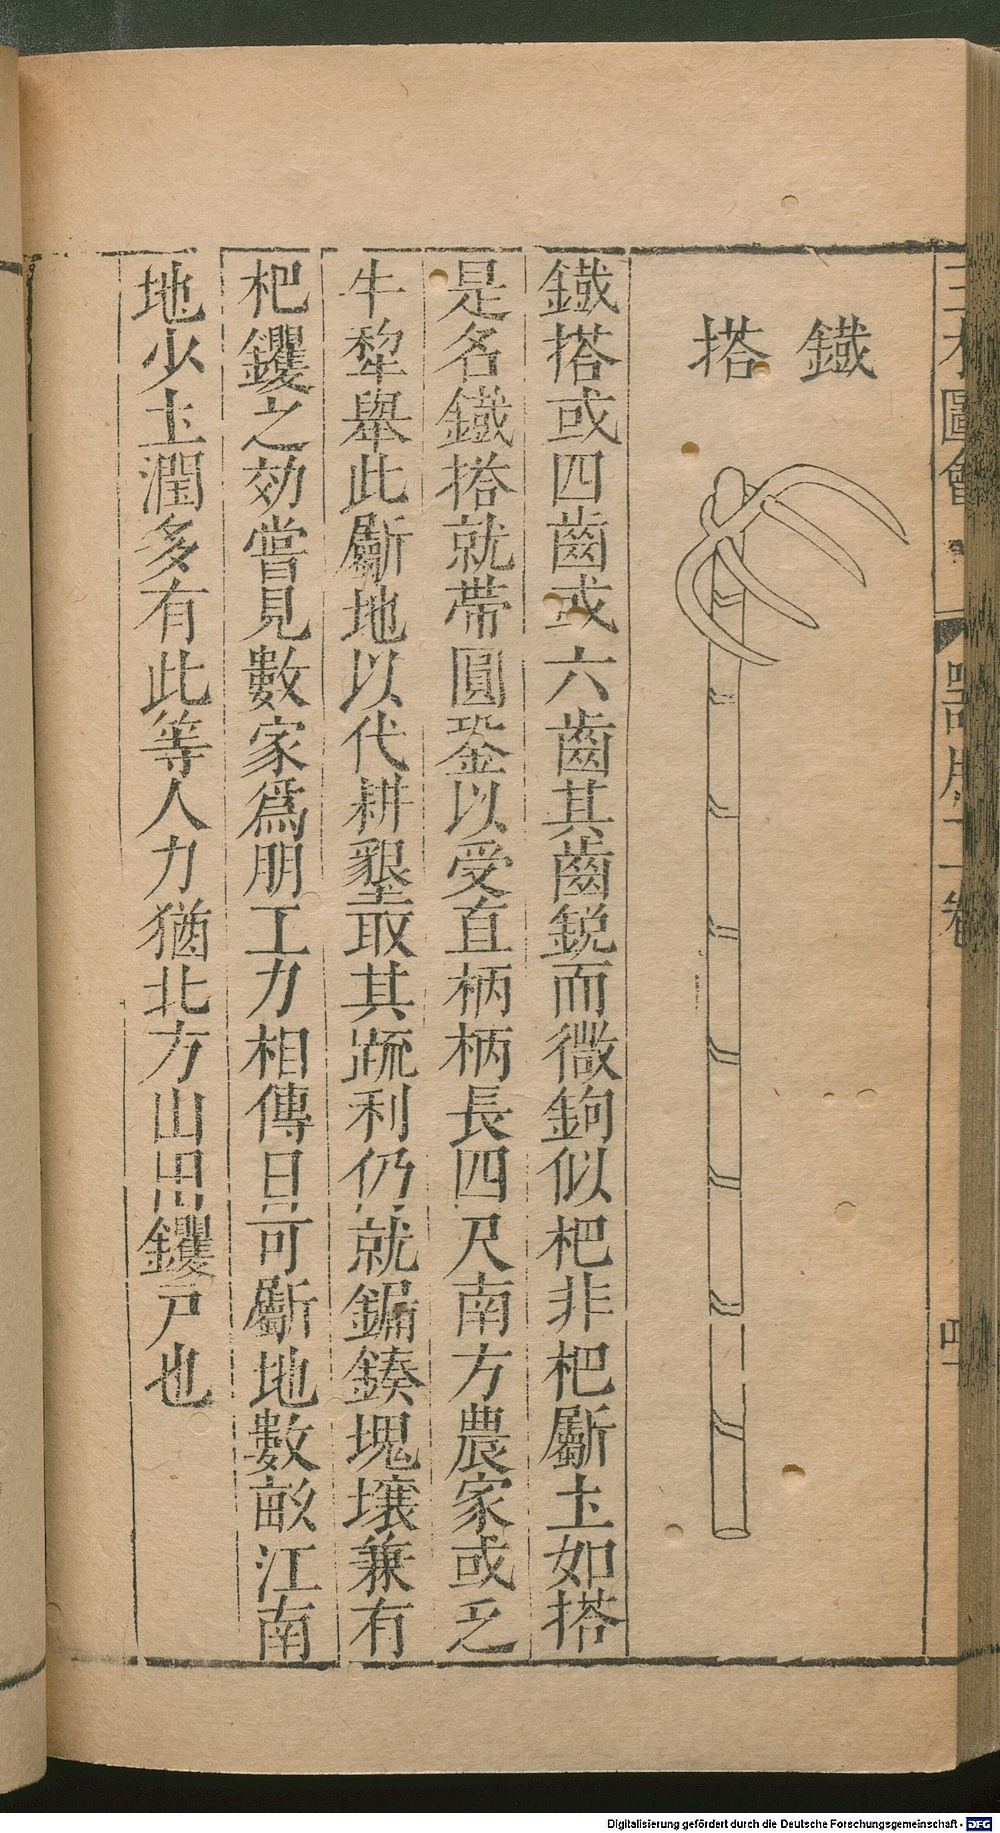 三才圖會
器用十一卷
鐵搭
鐵搭或四齒或六齒其齒銳而微鉤似杷非杷斸𡈽如搭
是名鐵搭就帶圓銎以受直柄柄長四尺南方農家或乏
牛犂舉此斸地以代耕墾取其疏利仍就鎉鍨塊壤兼有
杷钁之効嘗見數家爲朋工力相傳日可斸地數畝江南
地少𡈽潤多有此等人力猶北方山田钁戸也
Digitalisierung gefördert durch die Deutsche Forschungsgemeinschaft - DFG